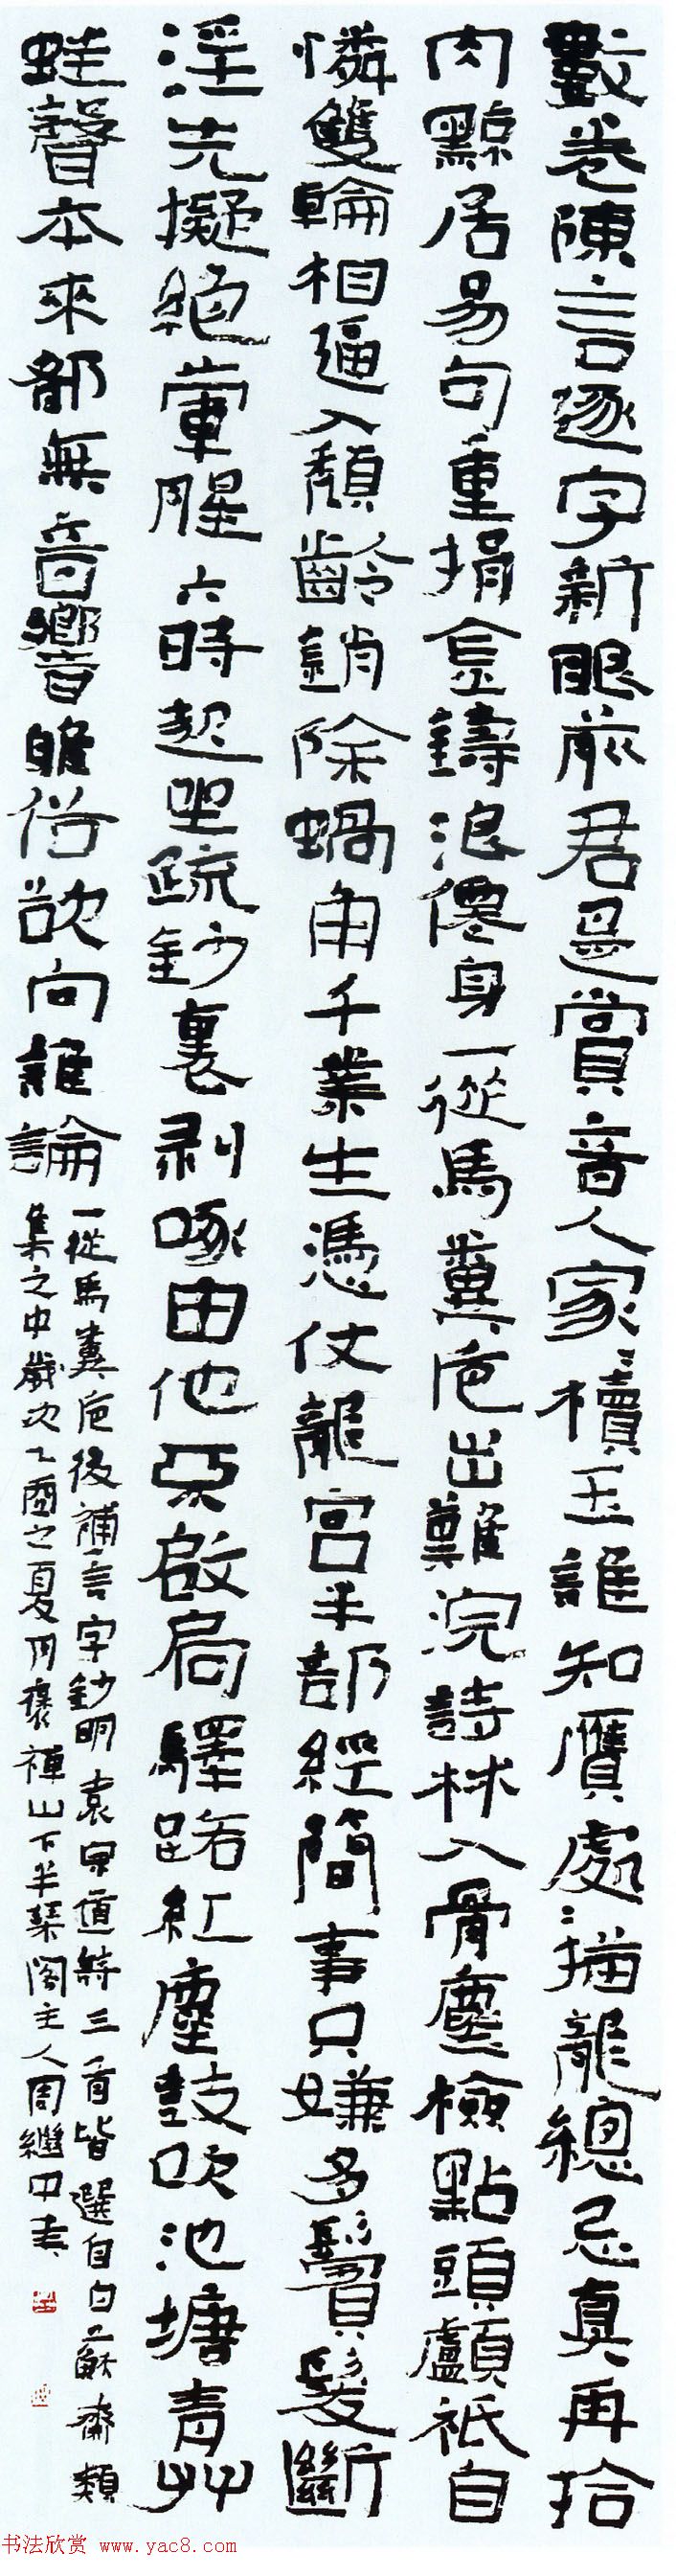 數卷陳言逐字新眼前君是賞音人家〻櫝玉誰知贋處〻描龍總忌真再拾
肉黥居易句重捐金鑄浪僊身一從馬糞卮出難浣詩林入骨塵檢點頭顱祇自
憐雙輪相逼入頹齡誚除蝸角千業生憑仗龍宮半部經簡事只嫌多鬢髮斷
淫先擬絕葷腥六時起坐疏鈔裏剥啄由他不啟扃驛路紅塵鼓吹池塘青艸
蛙聲本來都無音響雖俗欲向誰論
一從馬糞卮後補言字鈔明袁宗道詩三首皆選自白蘇齋類
集之中歲次乙酉之夏月褒禪山下半琴閣主人周繼中書
书法欣赏 www.yac8.com